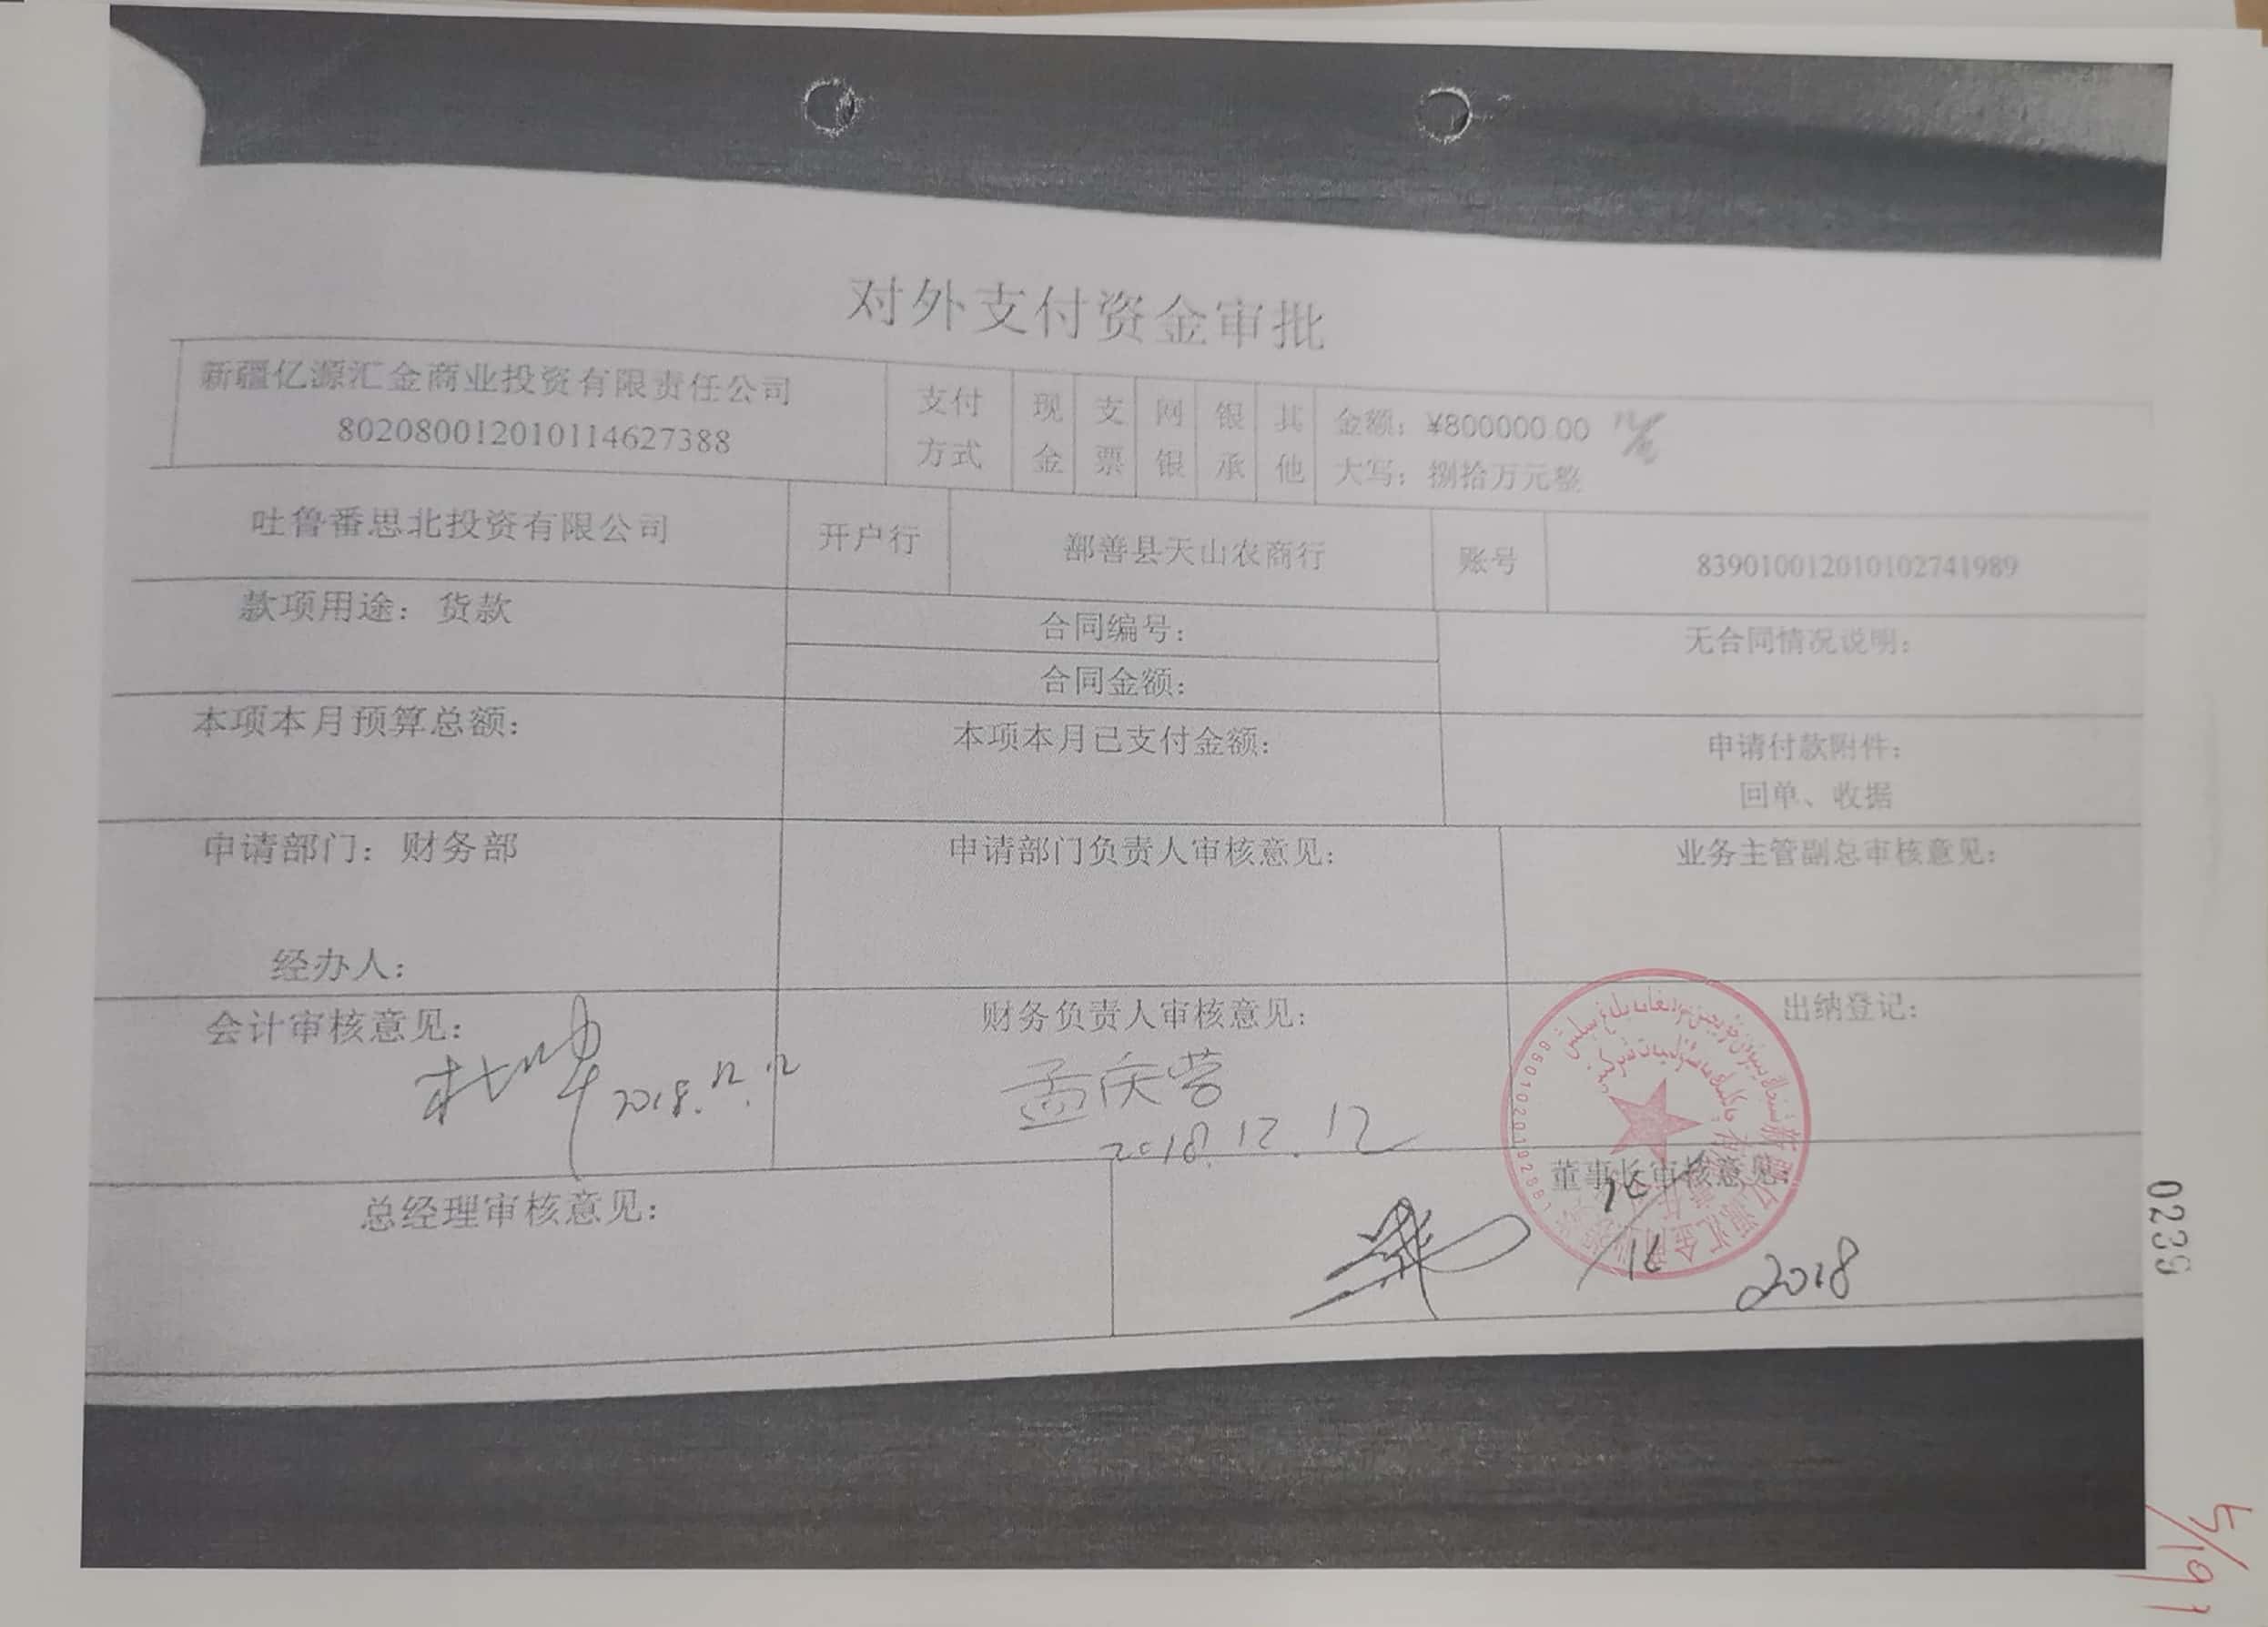 对外支付资金审批
新疆亿源汇金商业投资有限责任公司
802080012010114627388
支付方式
现金
支票
网银
银承
其他
金额：¥800000.00
大写：捌拾万元整
吐鲁番思北投资有限公司
开户行
鄯善县天山农商行
账号
839010012010102741989
款项用途：货款
合同编号：
合同金额：
无合同情况说明：
本项本月预算总额：
本项本月已支付金额：
申请付款附件：
回单、收据
申请部门：财务部
经办人：
申请部门负责人审核意见：
业务主管副总审核意见：
会计审核意见：
2018.12.12
财务负责人审核意见：
孟庆营
2018.12.12
出纳登记：
总经理审核意见：
董事长审核意见：
2018
0239
5/191